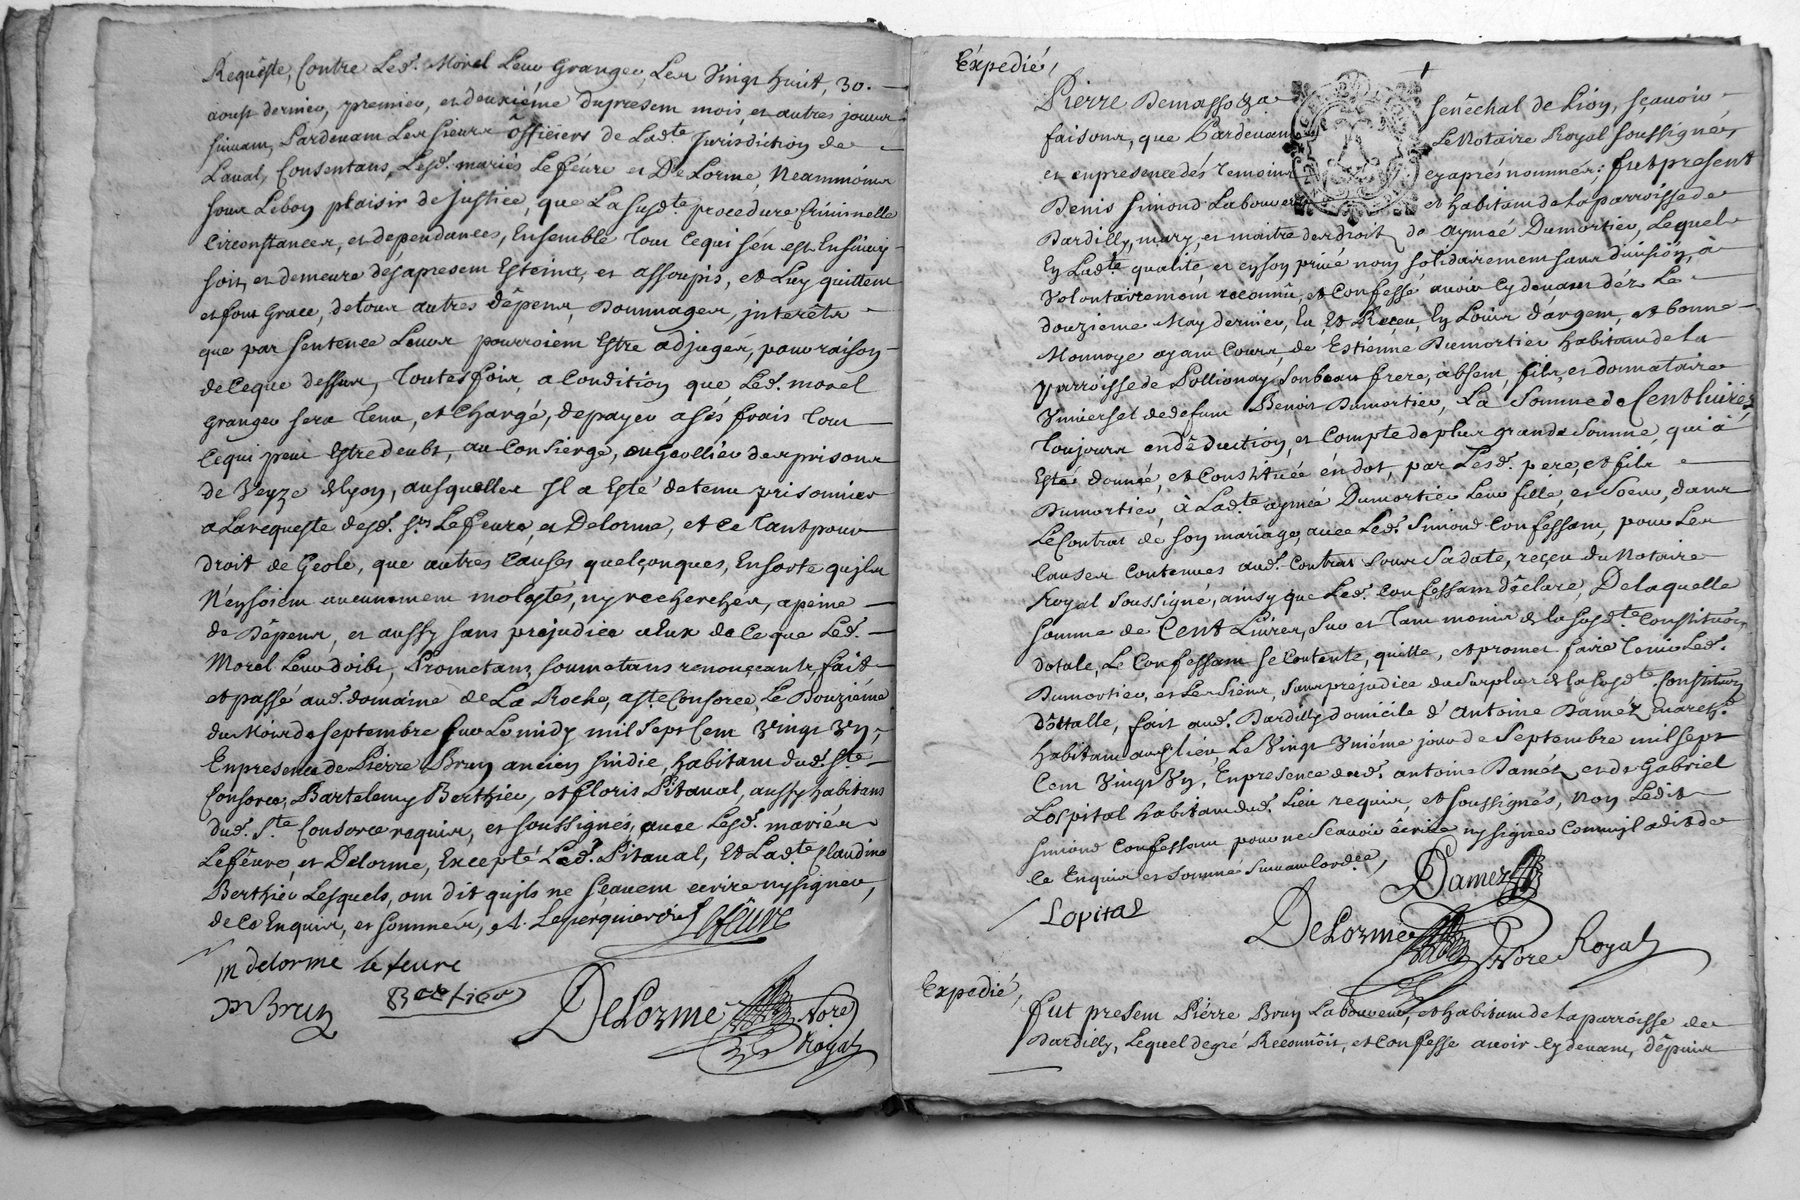 Requeste, Contre Led. Morel Leur Granger, Les Vingt huit, 30.
aoust dernier, premier, et deuxiéme dupresent mois, et autres jours
suivant, Pardevant Les sieurs officiers de Lad.te Jurisdiction de
Laval, Consentans, Lesd. mariés Lefévre et DeLorme, Neammoins
sous Lebon plaisir de justice, que La susd.te procedure Criminelle
Circonstances, et dependances, Ensemble Tout Cequi s'en est Ensuivy
soit et demeure des apresent Esteinte, et assoupis, et Luy quittent
et font Grace, detous autres dêpens, Dommages, jnterêts
que par sentence Leurs pourroient Estre adjugés, pour raison
deceque dessus, Toutesfois, a Condition que Led. morel
granger sera Tenu, et Chargé, depayer asés frais Tout
cequi peut Estredeubt, au Consierge, ou Geollier desprisons
de Veyze Lyon, ausquelles Il a Esté detenu prisonnier
a Larequeste desd. srs Lefeure, et Delorme, et ce Tantpour
droit de Geole, que autres Causes quelçonques, Ensorte qu'jls
N'ensoient aucunement molestés, ny recherchés, apeine
de Dêpens, et aussy sans prejudice a Eux de Ceque Led.
Morel Leur doibt, Prometans, soumetans renonçeants, fait
et passé aud. domaine de La Roche, a Ste Consorce, Le Douziéme
du Mois de septembre sur Le midy mil Sept Cent Vingt Vn,
Enpresence de Pierre Brun ancien sindic, habitant dud. Ste
Consorce, Bartelemy Berthier, et floris Pitaval, aussy habitans
dud. S.te Consorce requis, et soussignés, avec Lesd. mariés
Lefêvre, et Delorme, Excepté Led. Pitaval, Et Lad.te Claudine
Berthier Lesquels, ont dit qu'jls ne sçavent ecrire ny signer,
de ce Enquis, et sommés, et
Lefeuvre
m delorme le feure
P Brun Bertier DeLorme Nore Royal
Expedié,
Pierre Demassoza senêchal de Lion, sçavoir
faisons, que Pardevant Le Notaire Royal soussigné,
et enpresence dés Temoins cy aprés nommés; fut present
Denis simond Laboureur et habitant de la parroisse de
Dardilly, mary, et maitre des droits de aymée Dumortier, Lequel
En Lad.te qualité et en son privé nom solidairement sans division, à
Volontairement reconnû, et Confesse avoir cy devant déz Le
douzieme May dernier, Eu, Et Receu, En Louis d'argent, et bonne
Monnoye ayant Cours, de Estienne Dumortier habitant de la
parroisse de Pollionay, son beau frere, absent, fils, et donnataire
Vniversel dedefunt Benoit Dumortier, La Somme de Cent livres,
Toujours en dêduction, et Compte de plus grande Somme, qui à
Esté donné, et Constituée en dot, par Lesd. pere, et fils
Dumortier, à Lad.te aymée Dumortier Leur fille, et Soeur, dans
Le Contrat de son mariage, avec Led. Simond Confessant, pour Les
Causes Contenues aud. Contrat sous Sadate, reçeu du Notaire
Royal Soussigné, ainsy que Led. Confessant dêclare, De laquelle
somme de Cent Livres, sur et Tant moins de la susd.te Constitution
dotale, Le Confessant se Contente, quitte, et promet faire Tenir Led.
Dumortier, et Les siens, sans prejudice du Surplus de la susd.te Constitution
dôtalle, fait aud. Dardilly domicile d' Antoine Damez, marechal
habitant aud. lieu, Le Vingt Vniéme jour de Septembre mil sept
Cent Vingt Vn, Enpresence dud. antoine Damez, et de Gabriel
Lospital habitant dud. Lieu requis, et soussignés, Non Ledit
simond Confessant pour ne Scavoir êcrire ny signer Comm'jl a dit de
ce Enquis et Sommé
Damez
Lopital
DeLorme Nore Royal
Expedié,
fut present Piérre Brun Laboureur, et habitant de la parroisse de
Dardilly, Lequel degré Reconnôit, et Confesse avoir cy devant, dêpuis